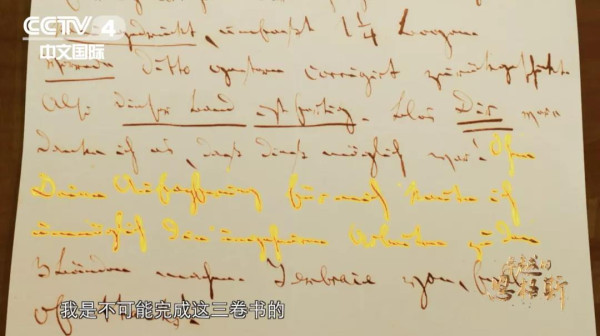 CCTV 4
中文国际
gedruckt, umfaßt 1 1/4 Bogen
Vorrede ditto gestern corrigirt zurückgeschickt.
Also dieser Band ist fertig. Blos Dir ver
danke ich es, daß dieß möglich war! Ohne
Deine Aufopferung für mich konnte ich
unmöglich die ungeheuren Arbeiten zu den
3 Bänden machen. I embrace you, full
of thanks!
恩格斯
我是不可能完成这三卷书的